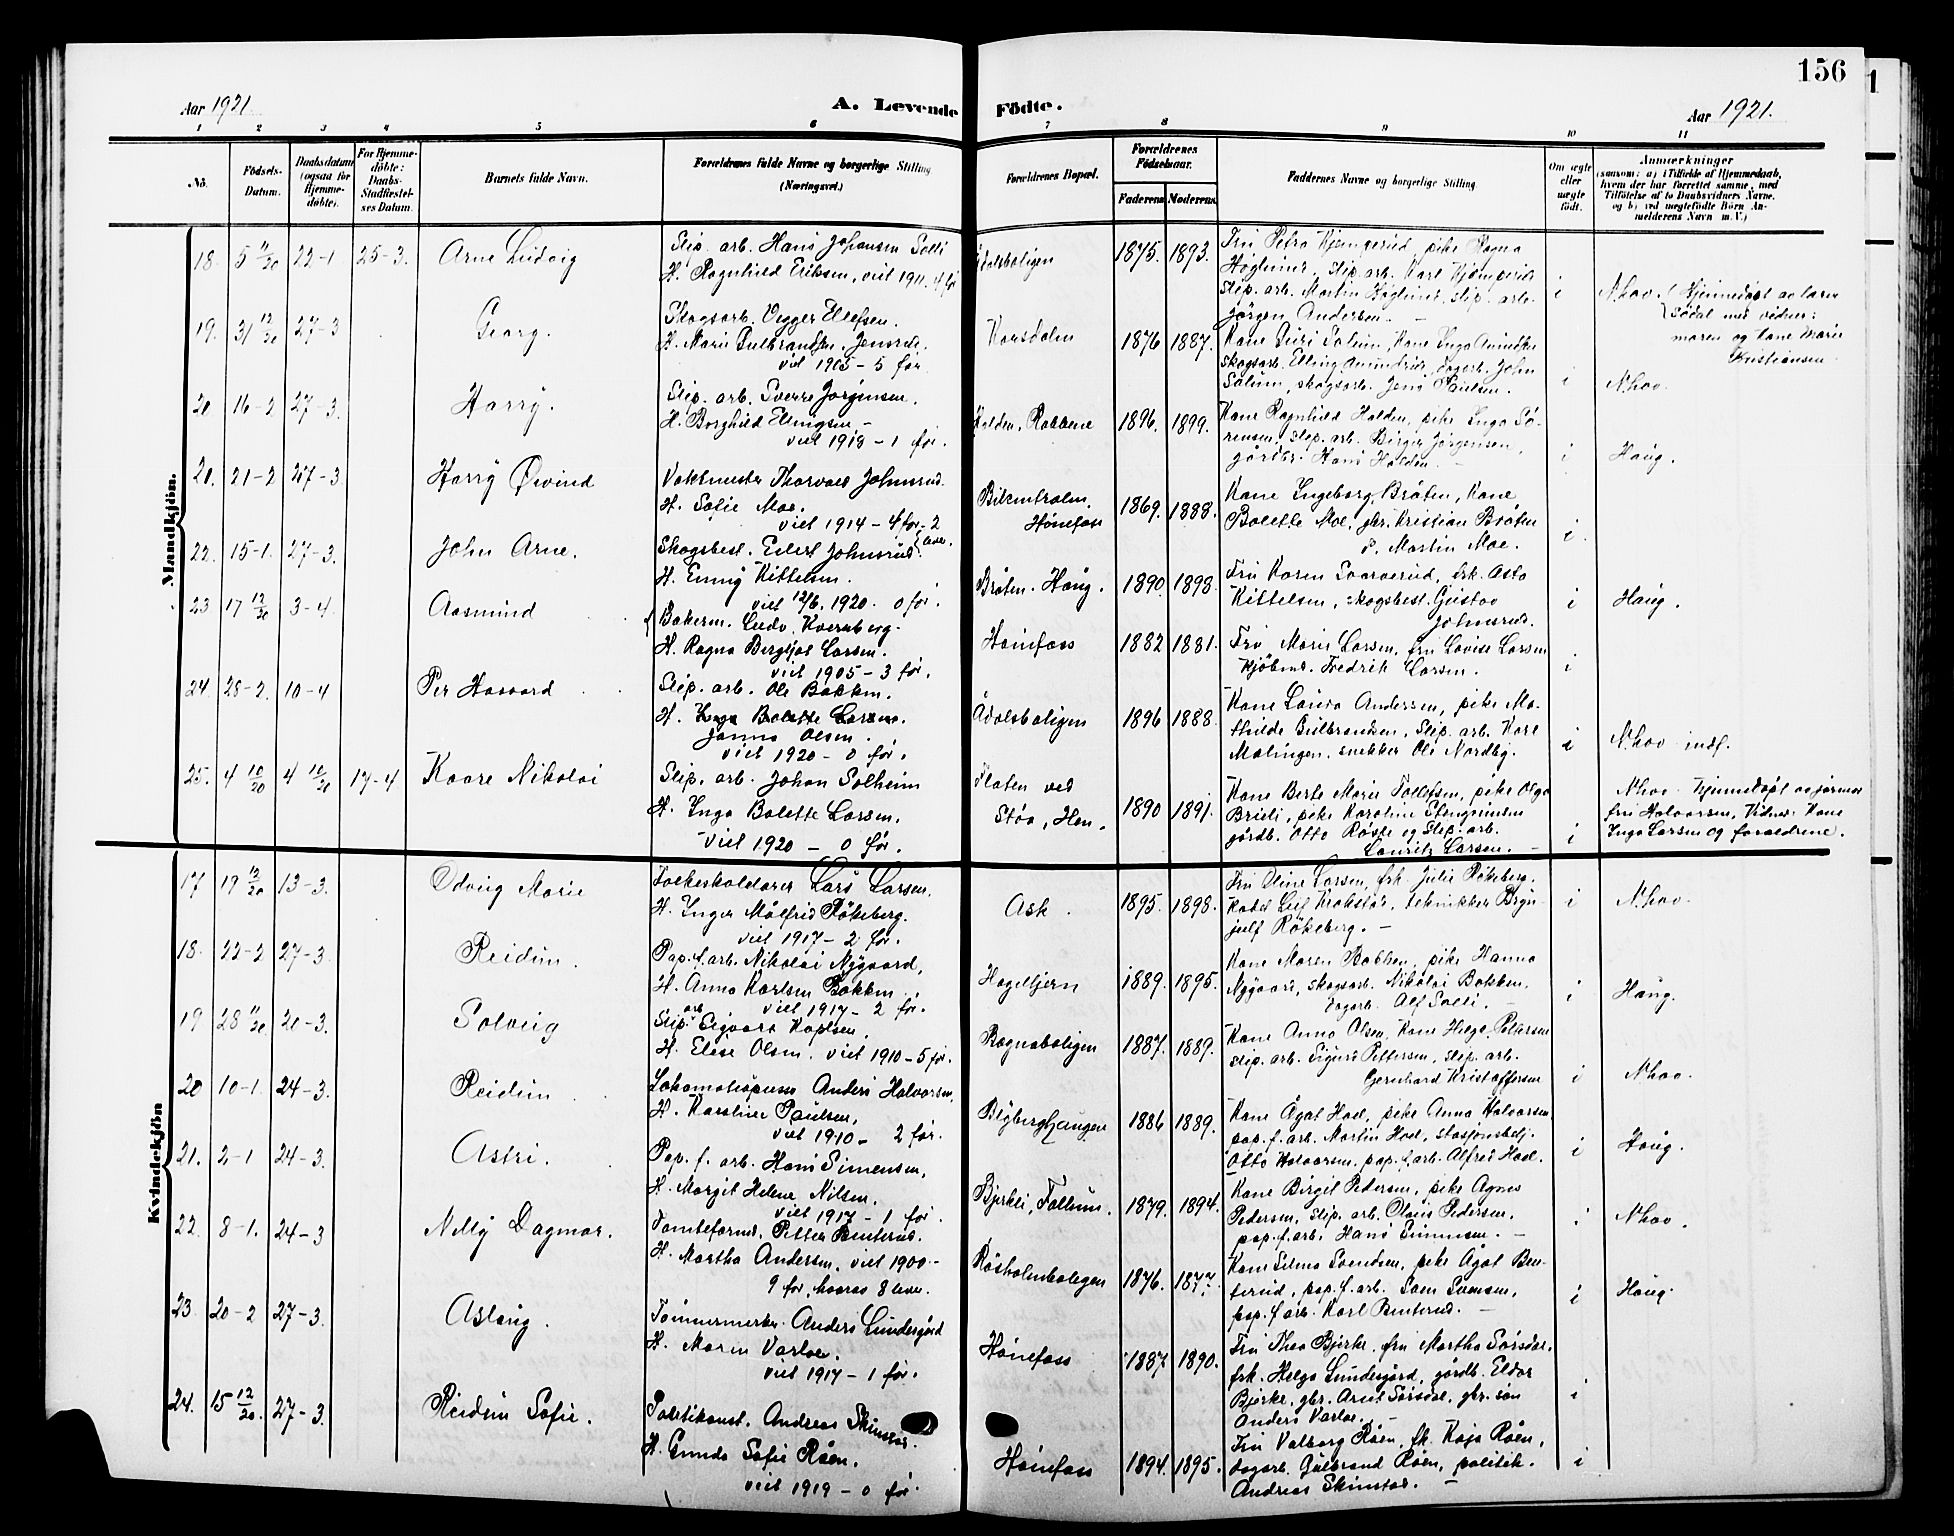 156
Aar 1921.
A. Levende
Födte.
Aar 1921.
1 2 3 4 5 6 7 8 9 10 11
No.
Födsels-Datum.
Daabsdatum (ogsaa for Hjemme-döbte).
For Hjemme-döbte: Daabs-Stadfæstel-ses Datum.
Barnets fulde Navn.
Forældrenes fulde Navne og borgerlige Stilling (Næringsvei.)
Forældrenes Bopæl.
Forældrenes Födselsaar.
Faderens Moderens
Faddernes Navne og borgerlige Stilling
Om ægte eller uægte født.
Anmærkninger
(saasom: a) i Tilfælde af Hjemmedaab, hvem der har forrettet samme, med Tilföielse af to Daabsvidners Navne, og b) ved uægtefödte Börn An-melderens Navn m. V.)
Mandkjön.
18. 5 11/20 22-1 25-3. Arne Ludvig
Slip. arb. Hans Johansen Solli
H. Ragnhild Eriksen, viet 1911. 4 før
Ådalsboligen 1875. 1893.
Fru Petra Kjemperud, pike Ragna
Høglund, slip. arb. Karl Kjemperud
slip. arb. Martin Høglund, slip. arb.
Jørgen Andersen. i
N.hov. Hjemmedøpt av lærer
Sødal med vidner:
moren og Kone Marie
Kristiansen.
19. 31 12/20 27-3 Georg.
Skogsarb. Vegger Ellefsen.
H. Marie Gulbrandsen, Jensrud.
viet 1905 - 5 før
Korsdalen 1876 1887.
Kone Guri Solum, Kone Inga Amundsen
skogsarb. Elling Amundrud, dagarb. John
Solum, skogsarb. Jens Paulsen. i N.hov.
20 16-2 27-3. Harry.
Slip. arb. Sverre Jørgensen.
H. Borghild Ellingsen -
viet 1918 - 1 før.
Halden, Rakkene 1896. 1899.
Kone Ragnhild Halden, pike Inga Sø-
rensen, slip. arb. Birger Jørgensen,
gårdbr. Hans Halden. - i Haug.
21. 21-2 27-3 Harry Øivind
Vaktmester Thorvald Johnsrud.
H. Sofie Moe.
viet 1914 - 4 før - 2 lever.
Bilcentralen, Hønefoss 1869. 1888.
Kone Ingeborg Bråten, Kone
Bolette Moe, gbr. Kristian Bråten
o. Martin Moe. i.
22. 15-1. 27-3. John Arne.
Skogsbest. Edert Johnsrud
H. Emmy Kittelsen.
viet 12/6. 1920. 0 før.
Bråten. Haug. 1890 1898.
Fru Karen Svarverud, frk. Asta
Kittelsen, skogsbest. Gustav
Johnsrud. i Haug.
23 17 12/20 3-4. Aasmund
Bakerm. Ludv. Kvernberg.
H. Ragna Bergljot Larsen.
viet 1905 - 3 før.
Hønefoss 1882 1881.
Fru Marie Larsen, fru Lovise Larsen
kjøbmd. Fredrik Larsen. i
24. 28-2. 10-4 Per Haavard
Slip. arb. Ole Bakken.
H. Inga Bolette Larsen.
Janna Olsen.
viet 1920 - 0 før.
Ådalsboligen 1896 1888.
Kone Laura Andersen, pike Ma-
thilde Gulbrandsen, slip. arb. Karl
Malingen, snekker Ole Nordby. i N.hov. indf.
25. 4 10/20 4 12/20 17-4 Kaare Nikolai
Slip. arb. Johan Solheim
H. Inga Bolette Larsen.
viet 1920 - 0 før.
Flaten ved
Støa, Hen. 1890 1891.
Kone Berte Marie Tollefsen, pike Olga
Brieli, pike Karoline Stengrimsen
gårdb. Otto Røste og slip. arb.
Lauritz Larsen. - i
N.hov. Hjemmedøpt av jormor
fru Halvorsen, Vidner: Kone
Inga Larsen og forældrene.
Kvindekjön
17 19 12/20 13-3. Odveig Marie
Folkeskolelærer Lars Larsen.
H. Inger Målfrid Røkeberg.
viet 1917 - 2 før.
Ask. 1895. 1898.
Fru Oline Larsen, frk. Julie Røkeberg.
Kadet Leif Krokstad, tekniker Bryn-
julf Røkeberg. - i N.hov.
18. 22-2 27-3. Reidun.
Pap. f. arb. Nikolai Nygaard,
H. Anna Karlsen Bakken.
viet 1917 - 2 før.
Hageltjern 1889. 1895.
Kone Maren Bakken, pike Hanna
Nygaard, skogsarb. Nikolai Bakken,
dagarb. Alf Solli. - i Haug.
19 28 11/20 20-3. Solveig
Slip. arb. Sigvart Karlsen.
H. Elise Olsen. viet 1910 - 5 før.
Bagnaboligen 1887. 1889.
Kone Anna Olsen, Kone Helga Pettersen
slip. arb. Sigurd Pettersen, slip. arb.
Gjerhard Kristoffersen i N.hov.
20 10-1. 24-3. Reidun
Lokomotivpusser Anders Halvorsen,
H. Karoline Paulsen,
viet 1910 - 2 før.
Blybergshaugen 1886 1889.
Kone Ågot Hoel, pike Anna Halvorsen
pap. f. arb. Martin Hoel, stasjonsbetj.
Otto Halvorsen, pap. f. arb. Alfred Hoel. i Haug.
21. 2-1 24-3. Astri.
Pap. f. arb. Hans Simensen,
H. Margit Helene Nilsen.
viet 1917 - 1 før.
Bjerkli, Follum. 1879. 1894.
Kone Birgit Pedersen, pike Agnes
Pedersen, slip. arb. Olaus Pedersen,
pap. f. arb. Hans Simensen. - i N.hov.
22. 8-1. 24-3 Nelly Dagmar.
Tomteformd. Petter Benterud.
H. Martha Andersen, viet 1900 -
9 før, hvorav 8 lever.
Råsholmboligen 1876. 1877.
Kone Selma Svendsen, pike Ågot Ben-
terud, pap. f. arb. Sven Svensen,
pap. f. arb. Karl Benterud. - i Haug.
23 20-2 27-3. Aslaug.
Tømmermerker Anders Lundesgård
H. Maren Varloe.
viet 1917 - 1 før.
Hønefoss 1887 1890.
Fru Thea Bjerke, fru Martha Sørsdal,
frk. Helga Lundesgård, gårdb. Eldor
Bjerke, gbr. Arnt Sørsdal, gbr. søn
Anders Varloe. - i
24. 15 12/20. 27-3. Reidun Sofie.
Politikonst. Andreas Skinstad.
H. Gunda Sofie Røen.
viet 1919 - 0 før.
Hønefoss 1894. 1895.
Fru Valborg Røen, frk. Kaja Røen,
dagarb. Gulbrand Røen, politik.
Andreas Skinstad. - i